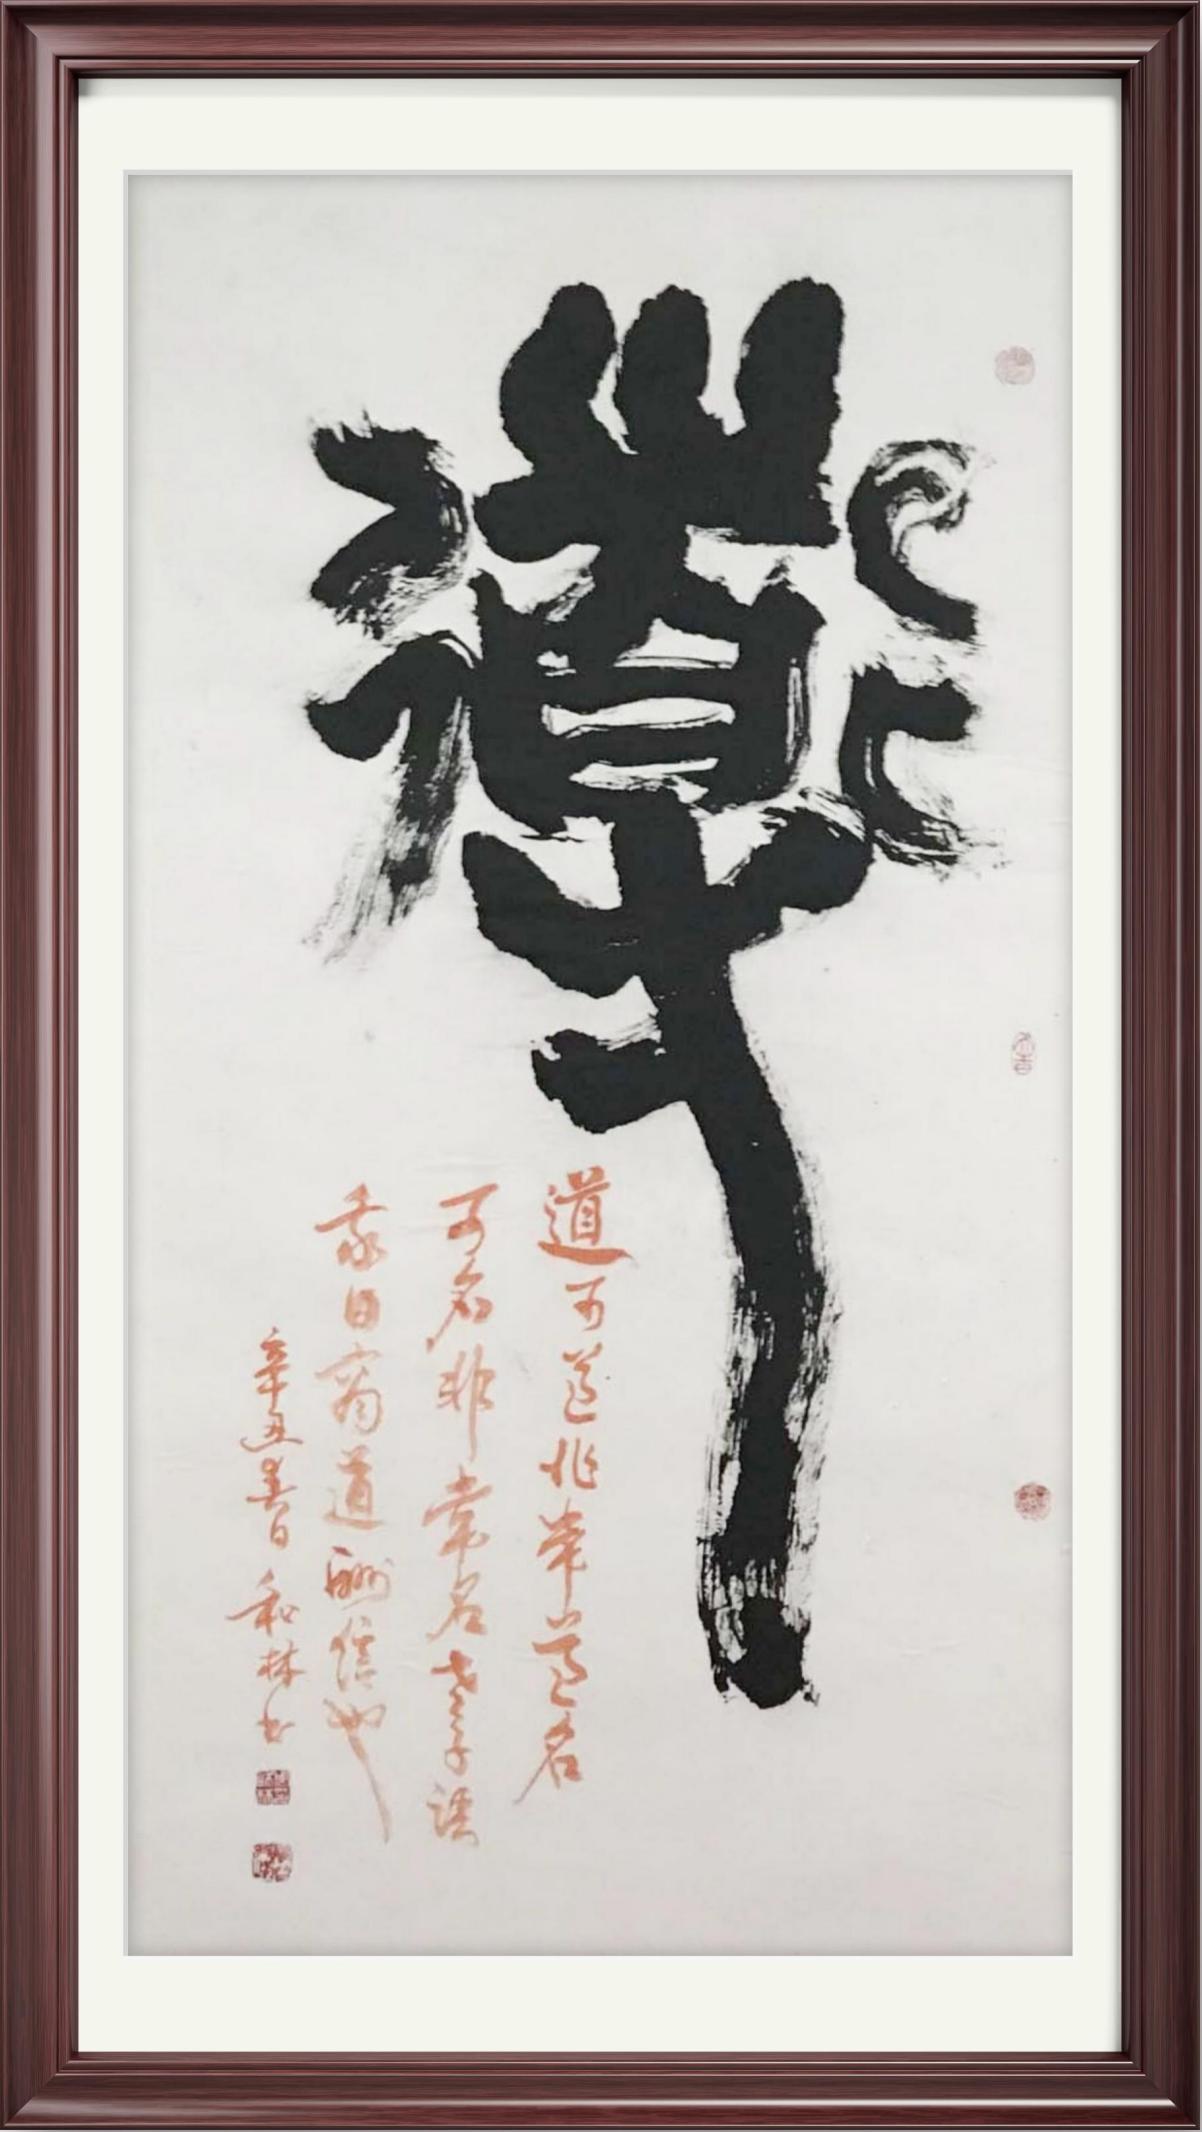 道
道可道非常道名
可名非常名老子语
余曰商道酬信也
辛丑春日和林书